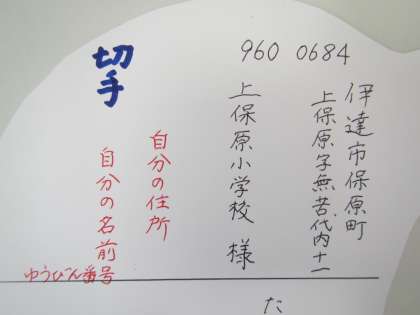 切手
960 0684
伊達市保原町
上保原字無苦代内十一
上保原小学校 様
自分の住所
自分の名前
ゆうびん番号
た